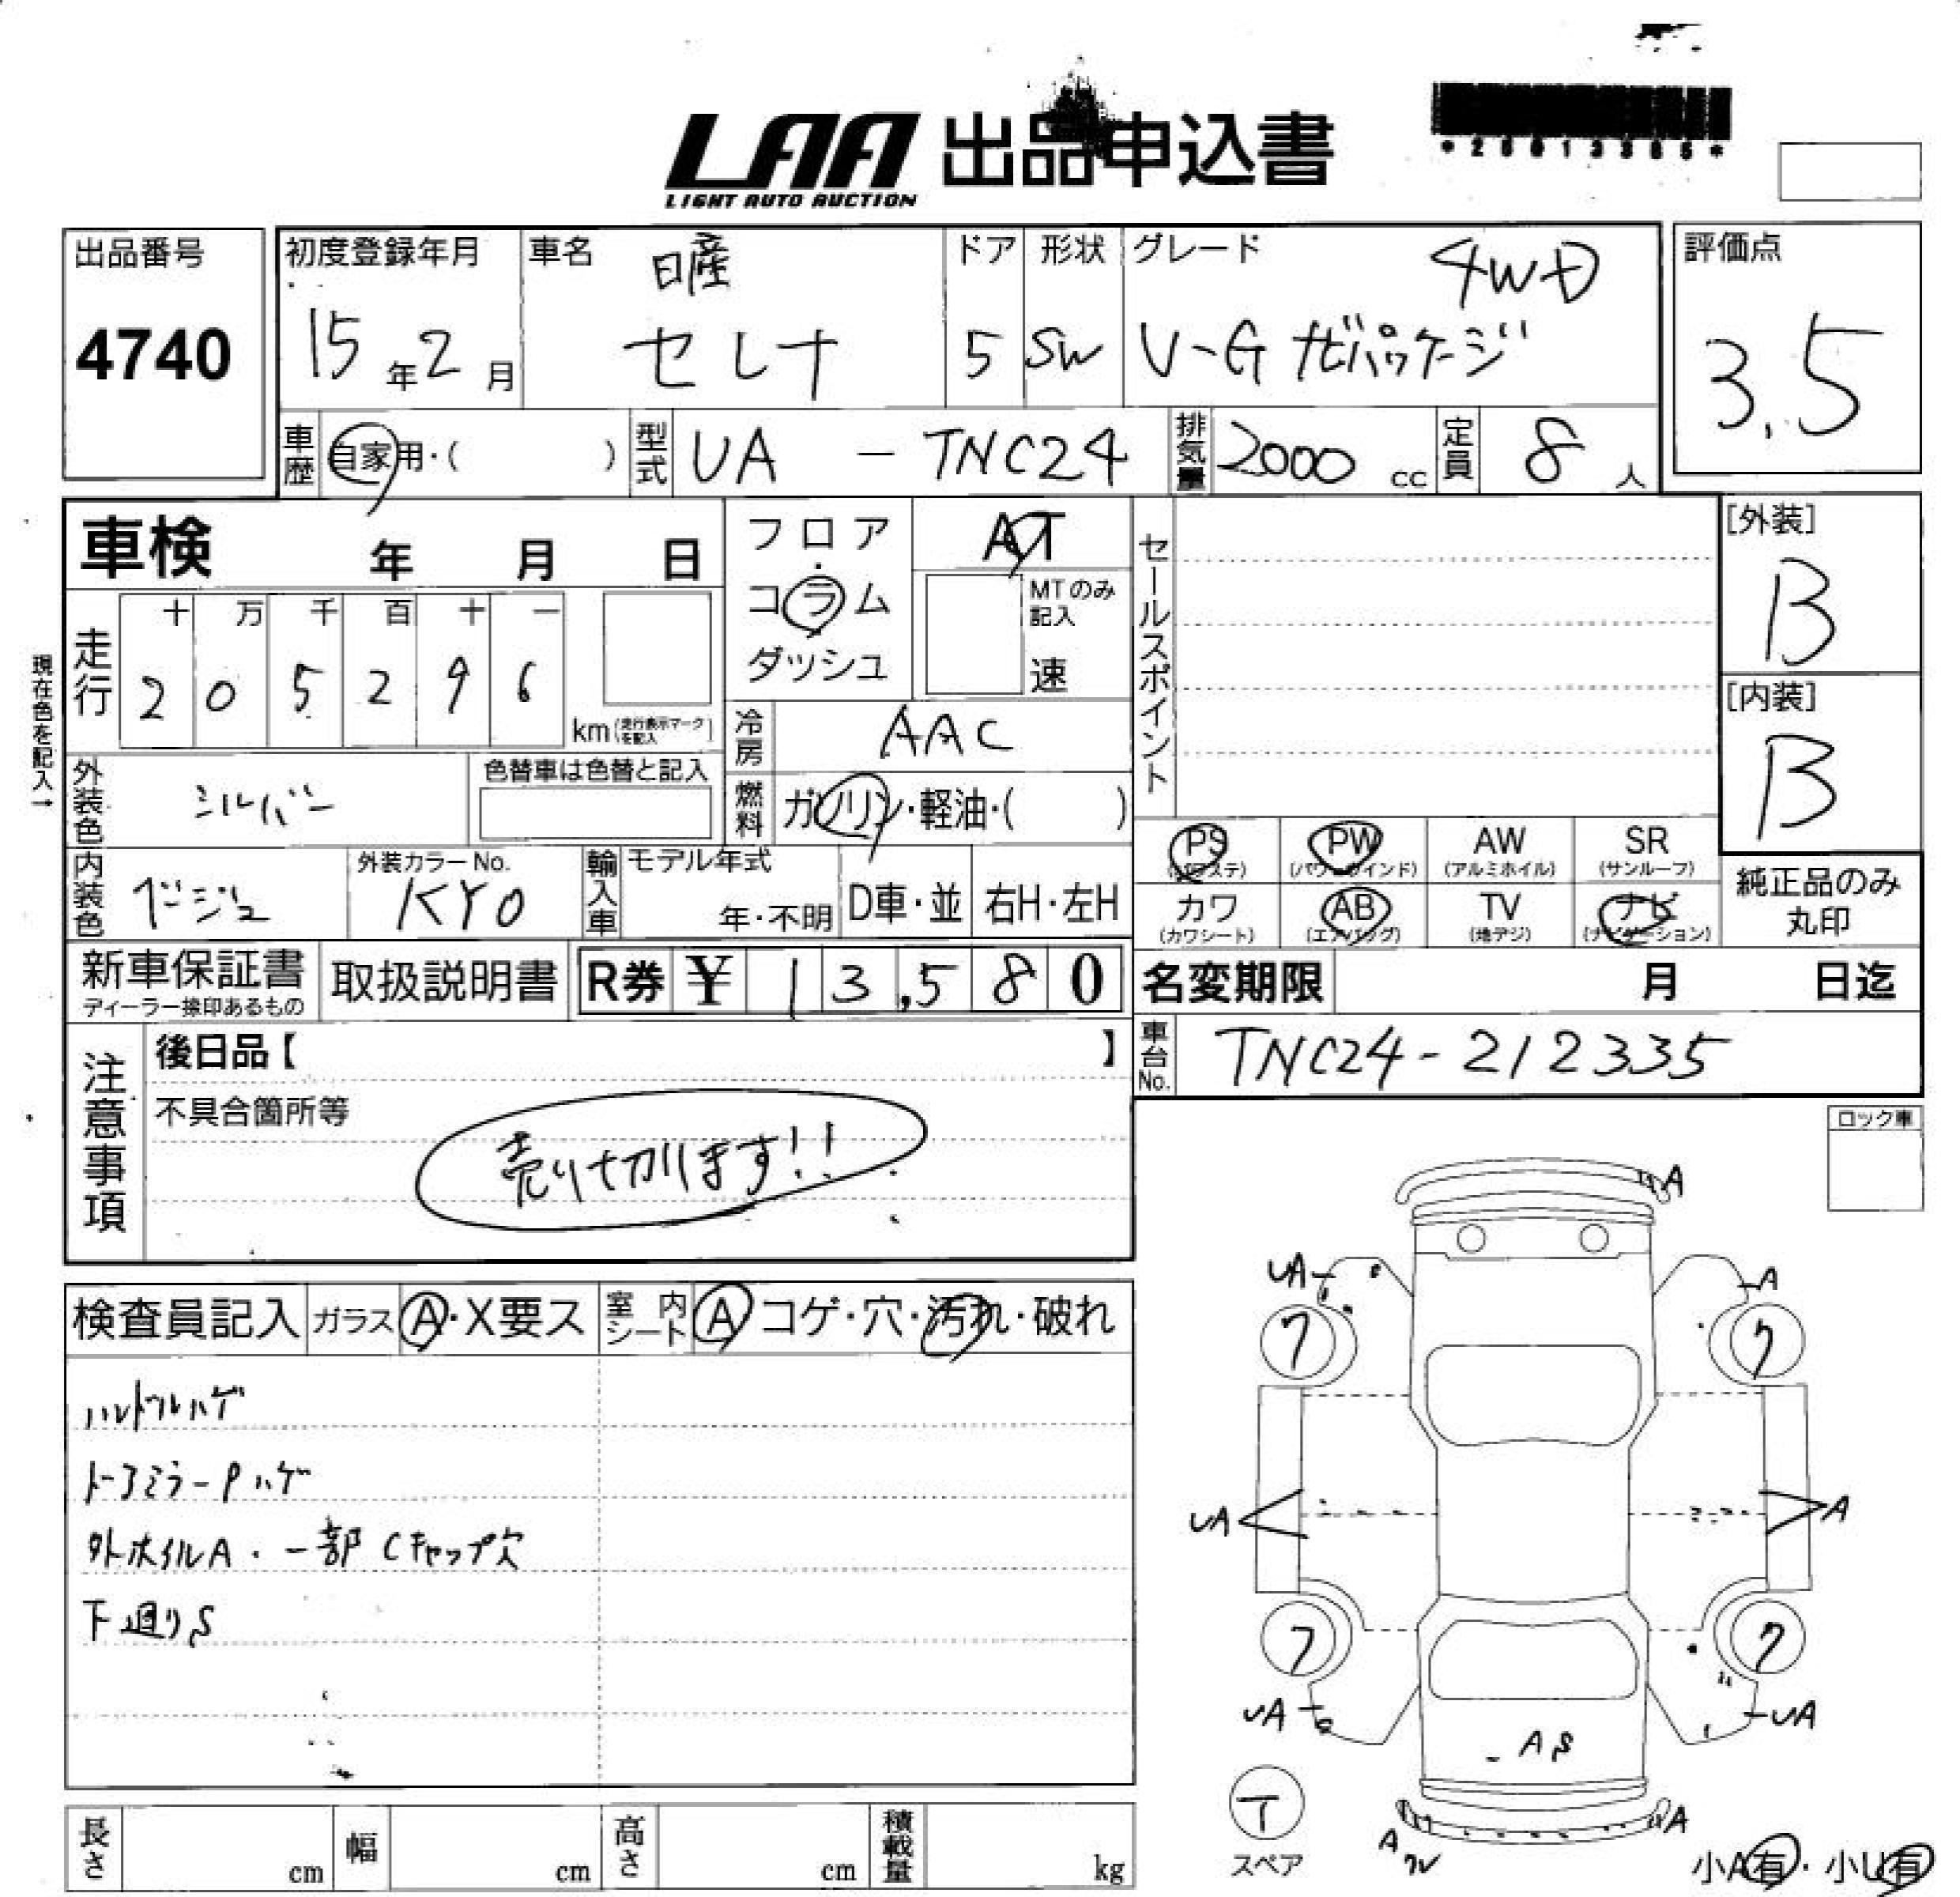 LAA 出品申込書
LIGHT AUTO AUCTION
出品番号
4740
初度登録年月
15年2月
車名
日産
セレナ
ドア
5
形状
SW
グレード
4WD
V-G ナビパッケージ
評価点
3.5
車歴
自家用・( )
型式
UA - TNC24
排気量
2000 cc
定員
8人
車検 年 月 日
フロア
コラム
ダッシュ
AT
MTのみ
記入
速
セールスポイント
[外装]
B
[内装]
B
現在色を記入→
走行
十 万 千 百 十 一
2 0 5 2 9 6
km(走行表示マークを記入)
冷房
AAC
外装色
シルバー
色替車は色替と記入
燃料
ガソリン・軽油・( )
内装色
ベージュ
外装カラーNo.
KY0
輸入車
モデル年式
年・不明
D車・並
右H・左H
PS
(パワステ)
PW
(パワーウインド)
AW
(アルミホイル)
SR
(サンルーフ)
カワ
(カワシート)
AB
(エアバッグ)
TV
(地デジ)
ナビ
(ナビゲーション)
純正品のみ
丸印
新車保証書
ディーラー捺印あるもの
取扱説明書
R券 ¥ 13,580
名変期限 月 日迄
車台No.
TNC24-212335
注意事項
後日品【 】
不具合箇所等
売り切ります!!
ロック車
検査員記入
ガラス A・X要ス
室内シート A コゲ・穴・汚れ・破れ
ハンドルハゲ
ドアミラーPハゲ
外ホイルA・一部Cキャップ欠
下廻りS
A
UA
A
7
7
UA
A
7
7
UA
UA
AS
T
スペア
A
A
小A有・小U有
長さ cm
幅 cm
高さ cm
積載量 kg